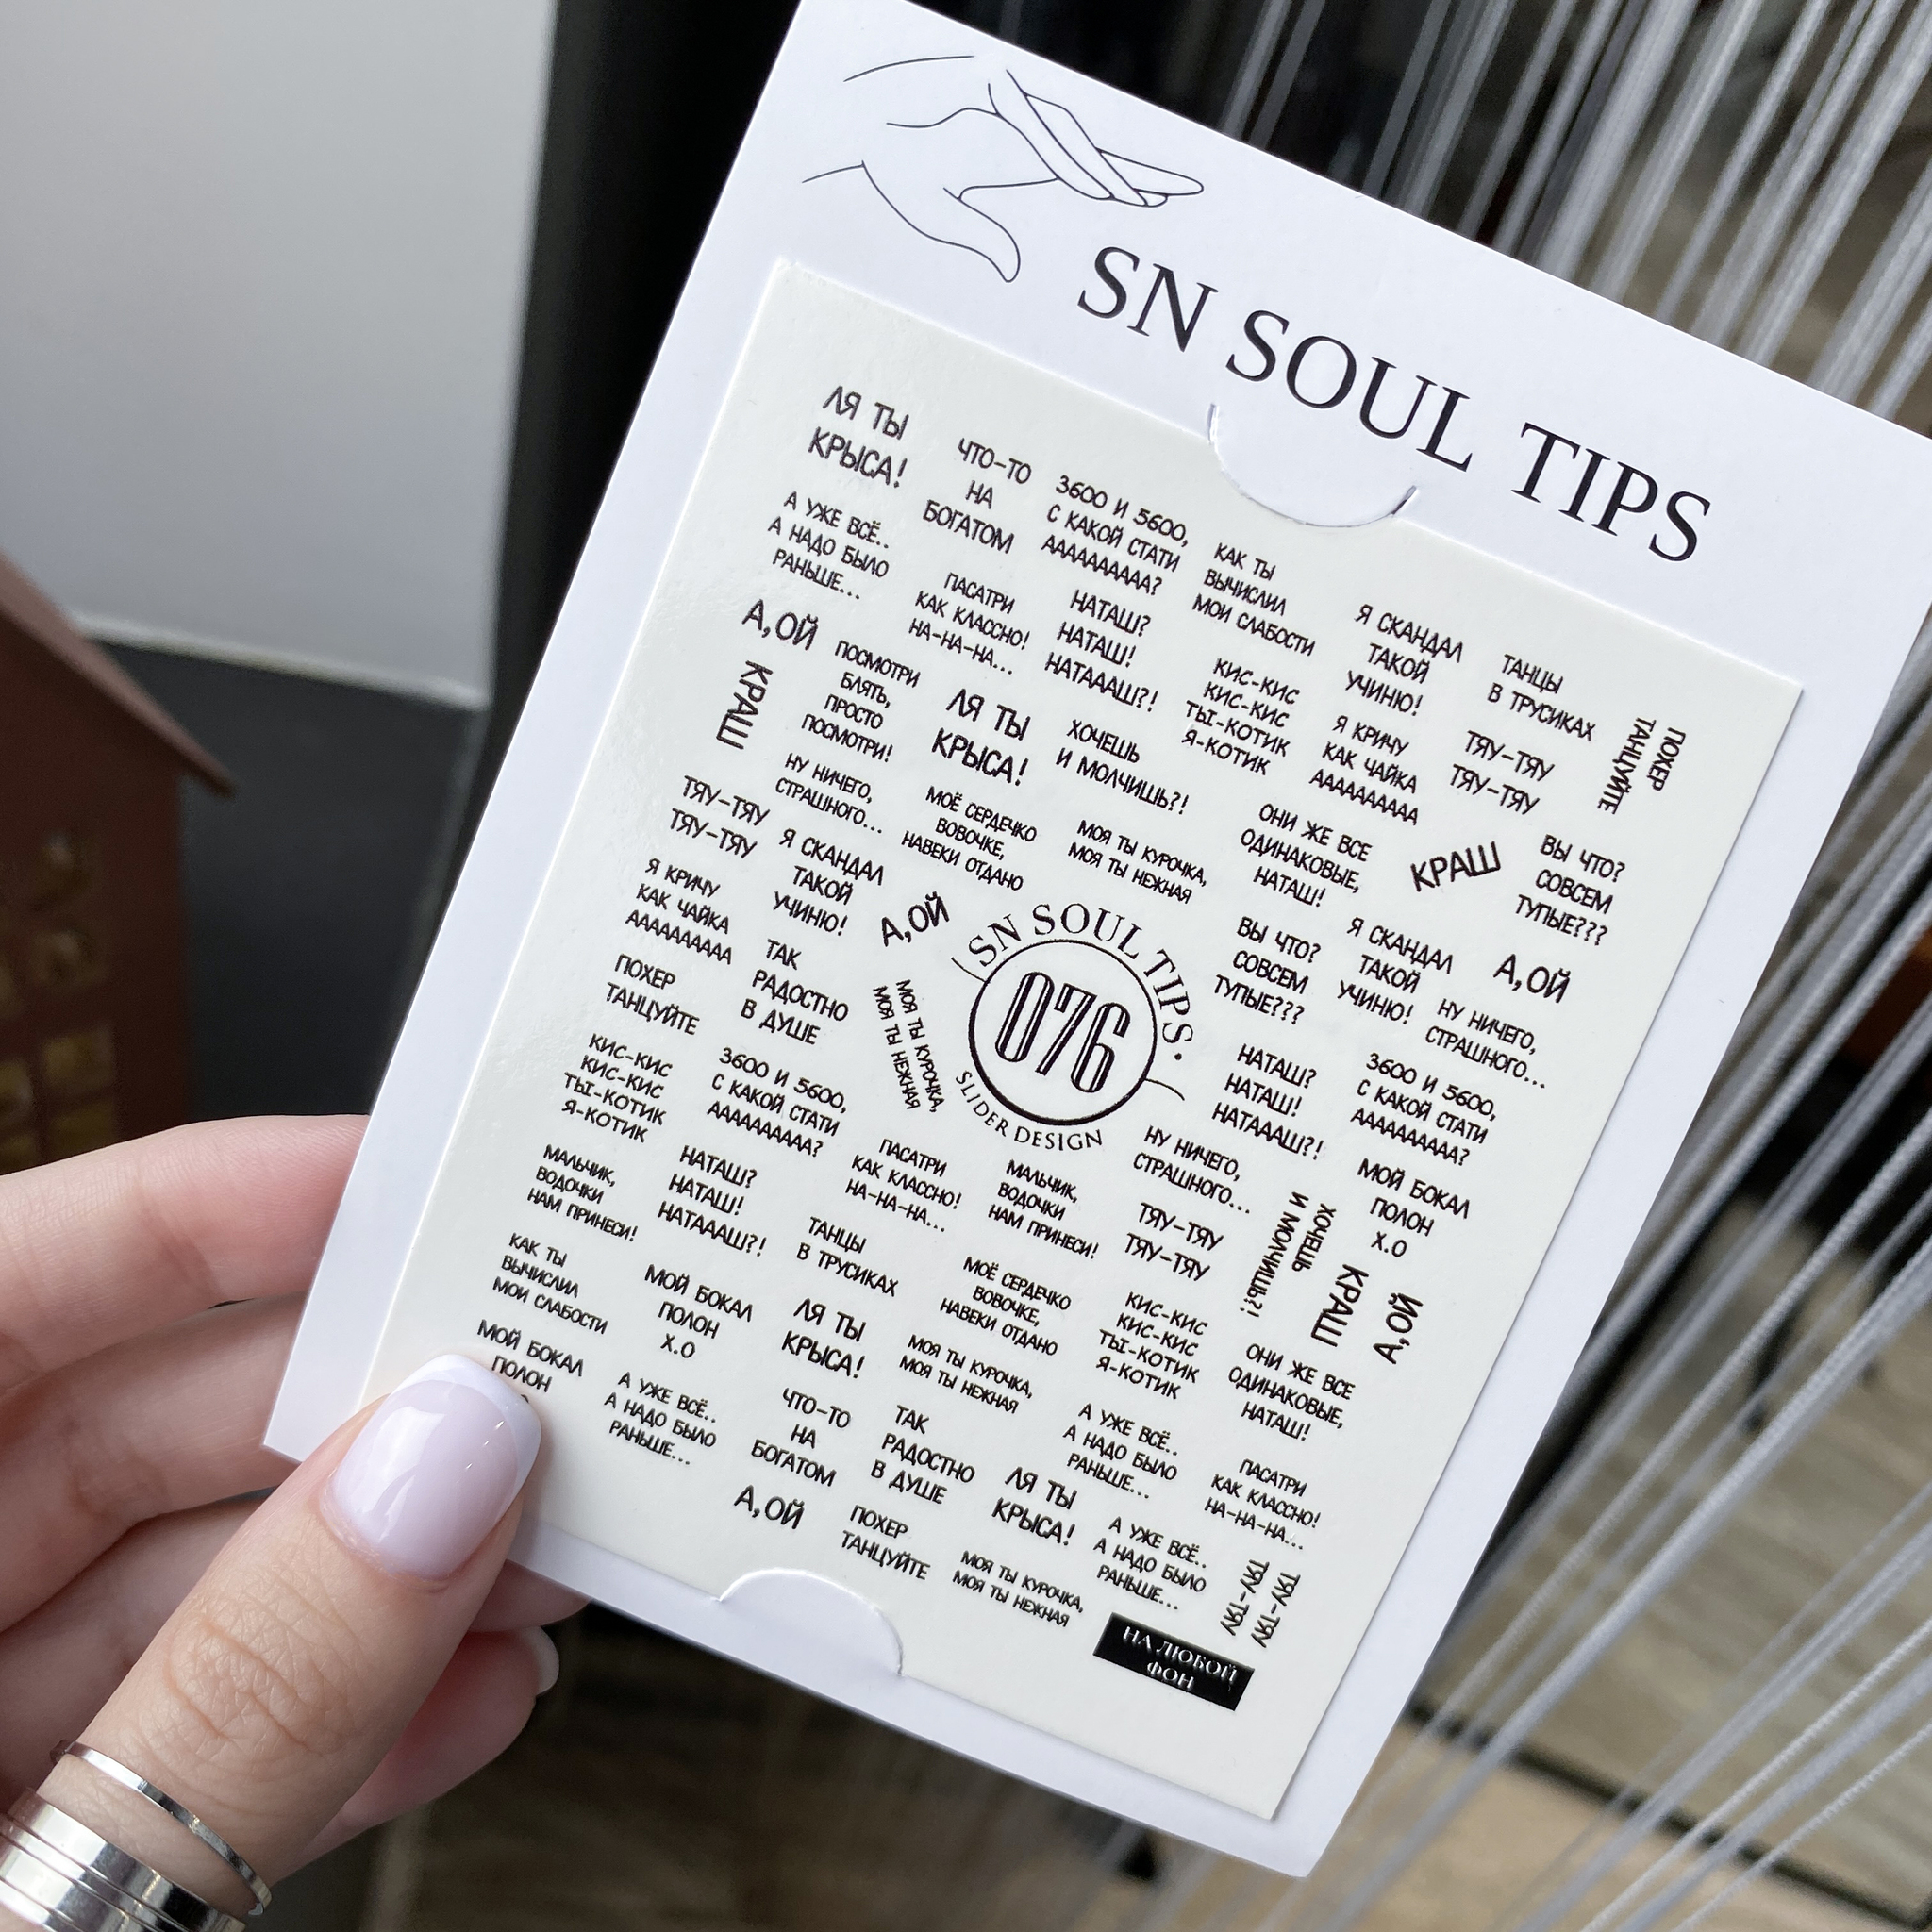 SN SOUL TIPS
ЛЯ ТЫ
КРЫСА!
ЧТО-ТО
НА
БОГАТОМ
3600 И 5600,
С КАКОЙ СТАТИ
ААААААААА?
КАК ТЫ
ВЫЧИСЛИЛ
МОИ СЛАБОСТИ
Я СКАНДАЛ
ТАКОЙ
УЧИНЮ!
ТАНЦЫ
В ТРУСИКАХ
ПОХЕР
ТАНЦУЙТЕ
А УЖЕ ВСЁ..
А НАДО БЫЛО
РАНЬШЕ...
ПАСАТРИ
КАК КЛАССНО!
НА-НА-НА...
НАТАШ?
НАТАШ!
НАТАААШ?!
КИС-КИС
КИС-КИС
ТЫ-КОТИК
Я-КОТИК
Я КРИЧУ
КАК ЧАЙКА
АААААААААА
ТЯУ-ТЯУ
ТЯУ-ТЯУ
А,ОЙ
КРАШ
ПОСМОТРИ
БЛЯТЬ,
ПРОСТО
ПОСМОТРИ!
ЛЯ ТЫ
КРЫСА!
ХОЧЕШЬ
И МОЛЧИШЬ?!
ОНИ ЖЕ ВСЕ
ОДИНАКОВЫЕ,
НАТАШ!
КРАШ
ВЫ ЧТО?
СОВСЕМ
ТУПЫЕ???
ТЯУ-ТЯУ
ТЯУ-ТЯУ
НУ НИЧЕГО,
СТРАШНОГО...
МОЁ СЕРДЕЧКО
ВОВОЧКЕ,
НАВЕКИ ОТДАНО
МОЯ ТЫ КУРОЧКА,
МОЯ ТЫ НЕЖНАЯ
Я КРИЧУ
КАК ЧАЙКА
АААААААААА
Я СКАНДАЛ
ТАКОЙ
УЧИНЮ!
А,ОЙ
SN SOUL TIPS.
076
SLIDER DESIGN
ВЫ ЧТО?
СОВСЕМ
ТУПЫЕ???
Я СКАНДАЛ
ТАКОЙ
УЧИНЮ!
А,ОЙ
НУ НИЧЕГО,
СТРАШНОГО...
ПОХЕР
ТАНЦУЙТЕ
ТАК
РАДОСТНО
В ДУШЕ
МОЯ ТЫ КУРОЧКА,
МОЯ ТЫ НЕЖНАЯ
НАТАШ?
НАТАШ!
НАТАААШ?!
3600 И 5600,
С КАКОЙ СТАТИ
АААААААААА?
КИС-КИС
КИС-КИС
ТЫ-КОТИК
Я-КОТИК
3600 И 5600,
С КАКОЙ СТАТИ
ААААААААА?
ПАСАТРИ
КАК КЛАССНО!
НА-НА-НА...
МАЛЬЧИК,
ВОДОЧКИ
НАМ ПРИНЕСИ!
НУ НИЧЕГО,
СТРАШНОГО...
МОЙ БОКАЛ
ПОЛОН
Х.О
МАЛЬЧИК,
ВОДОЧКИ
НАМ ПРИНЕСИ!
НАТАШ?
НАТАШ!
НАТАААШ?!
ТАНЦЫ
В ТРУСИКАХ
МОЁ СЕРДЕЧКО
ВОВОЧКЕ,
НАВЕКИ ОТДАНО
ТЯУ-ТЯУ
ТЯУ-ТЯУ
ХОЧЕШЬ
И МОЛЧИШЬ?!
КРАШ
А,ОЙ
КАК ТЫ
ВЫЧИСЛИЛ
МОИ СЛАБОСТИ
МОЙ БОКАЛ
ПОЛОН
Х.О
ЛЯ ТЫ
КРЫСА!
МОЯ ТЫ КУРОЧКА,
МОЯ ТЫ НЕЖНАЯ
КИС-КИС
КИС-КИС
ТЫ-КОТИК
Я-КОТИК
ОНИ ЖЕ ВСЕ
ОДИНАКОВЫЕ,
НАТАШ!
МОЙ БОКАЛ
ПОЛОН
А УЖЕ ВСЁ..
А НАДО БЫЛО
РАНЬШЕ...
ЧТО-ТО
НА
БОГАТОМ
ТАК
РАДОСТНО
В ДУШЕ
ЛЯ ТЫ
КРЫСА!
А УЖЕ ВСЁ..
А НАДО БЫЛО
РАНЬШЕ...
ПАСАТРИ
КАК КЛАССНО!
НА-НА-НА...
А,ОЙ
ПОХЕР
ТАНЦУЙТЕ
МОЯ ТЫ КУРОЧКА,
МОЯ ТЫ НЕЖНАЯ
А УЖЕ ВСЁ..
А НАДО БЫЛО
РАНЬШЕ...
ТЯУ-ТЯУ
ТЯУ-ТЯУ
НА ЛЮБОЙ
ФОН